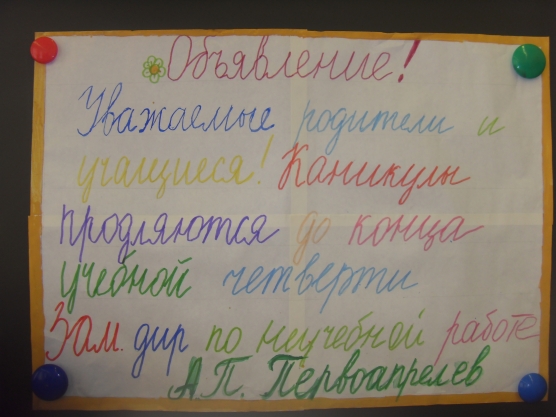 Объявление!
Уважаемые родители и
учащиеся! Каникулы
продляются до конца
учебной четверти
Зам. дир по неучебной работе
А.П. Первоапрелев